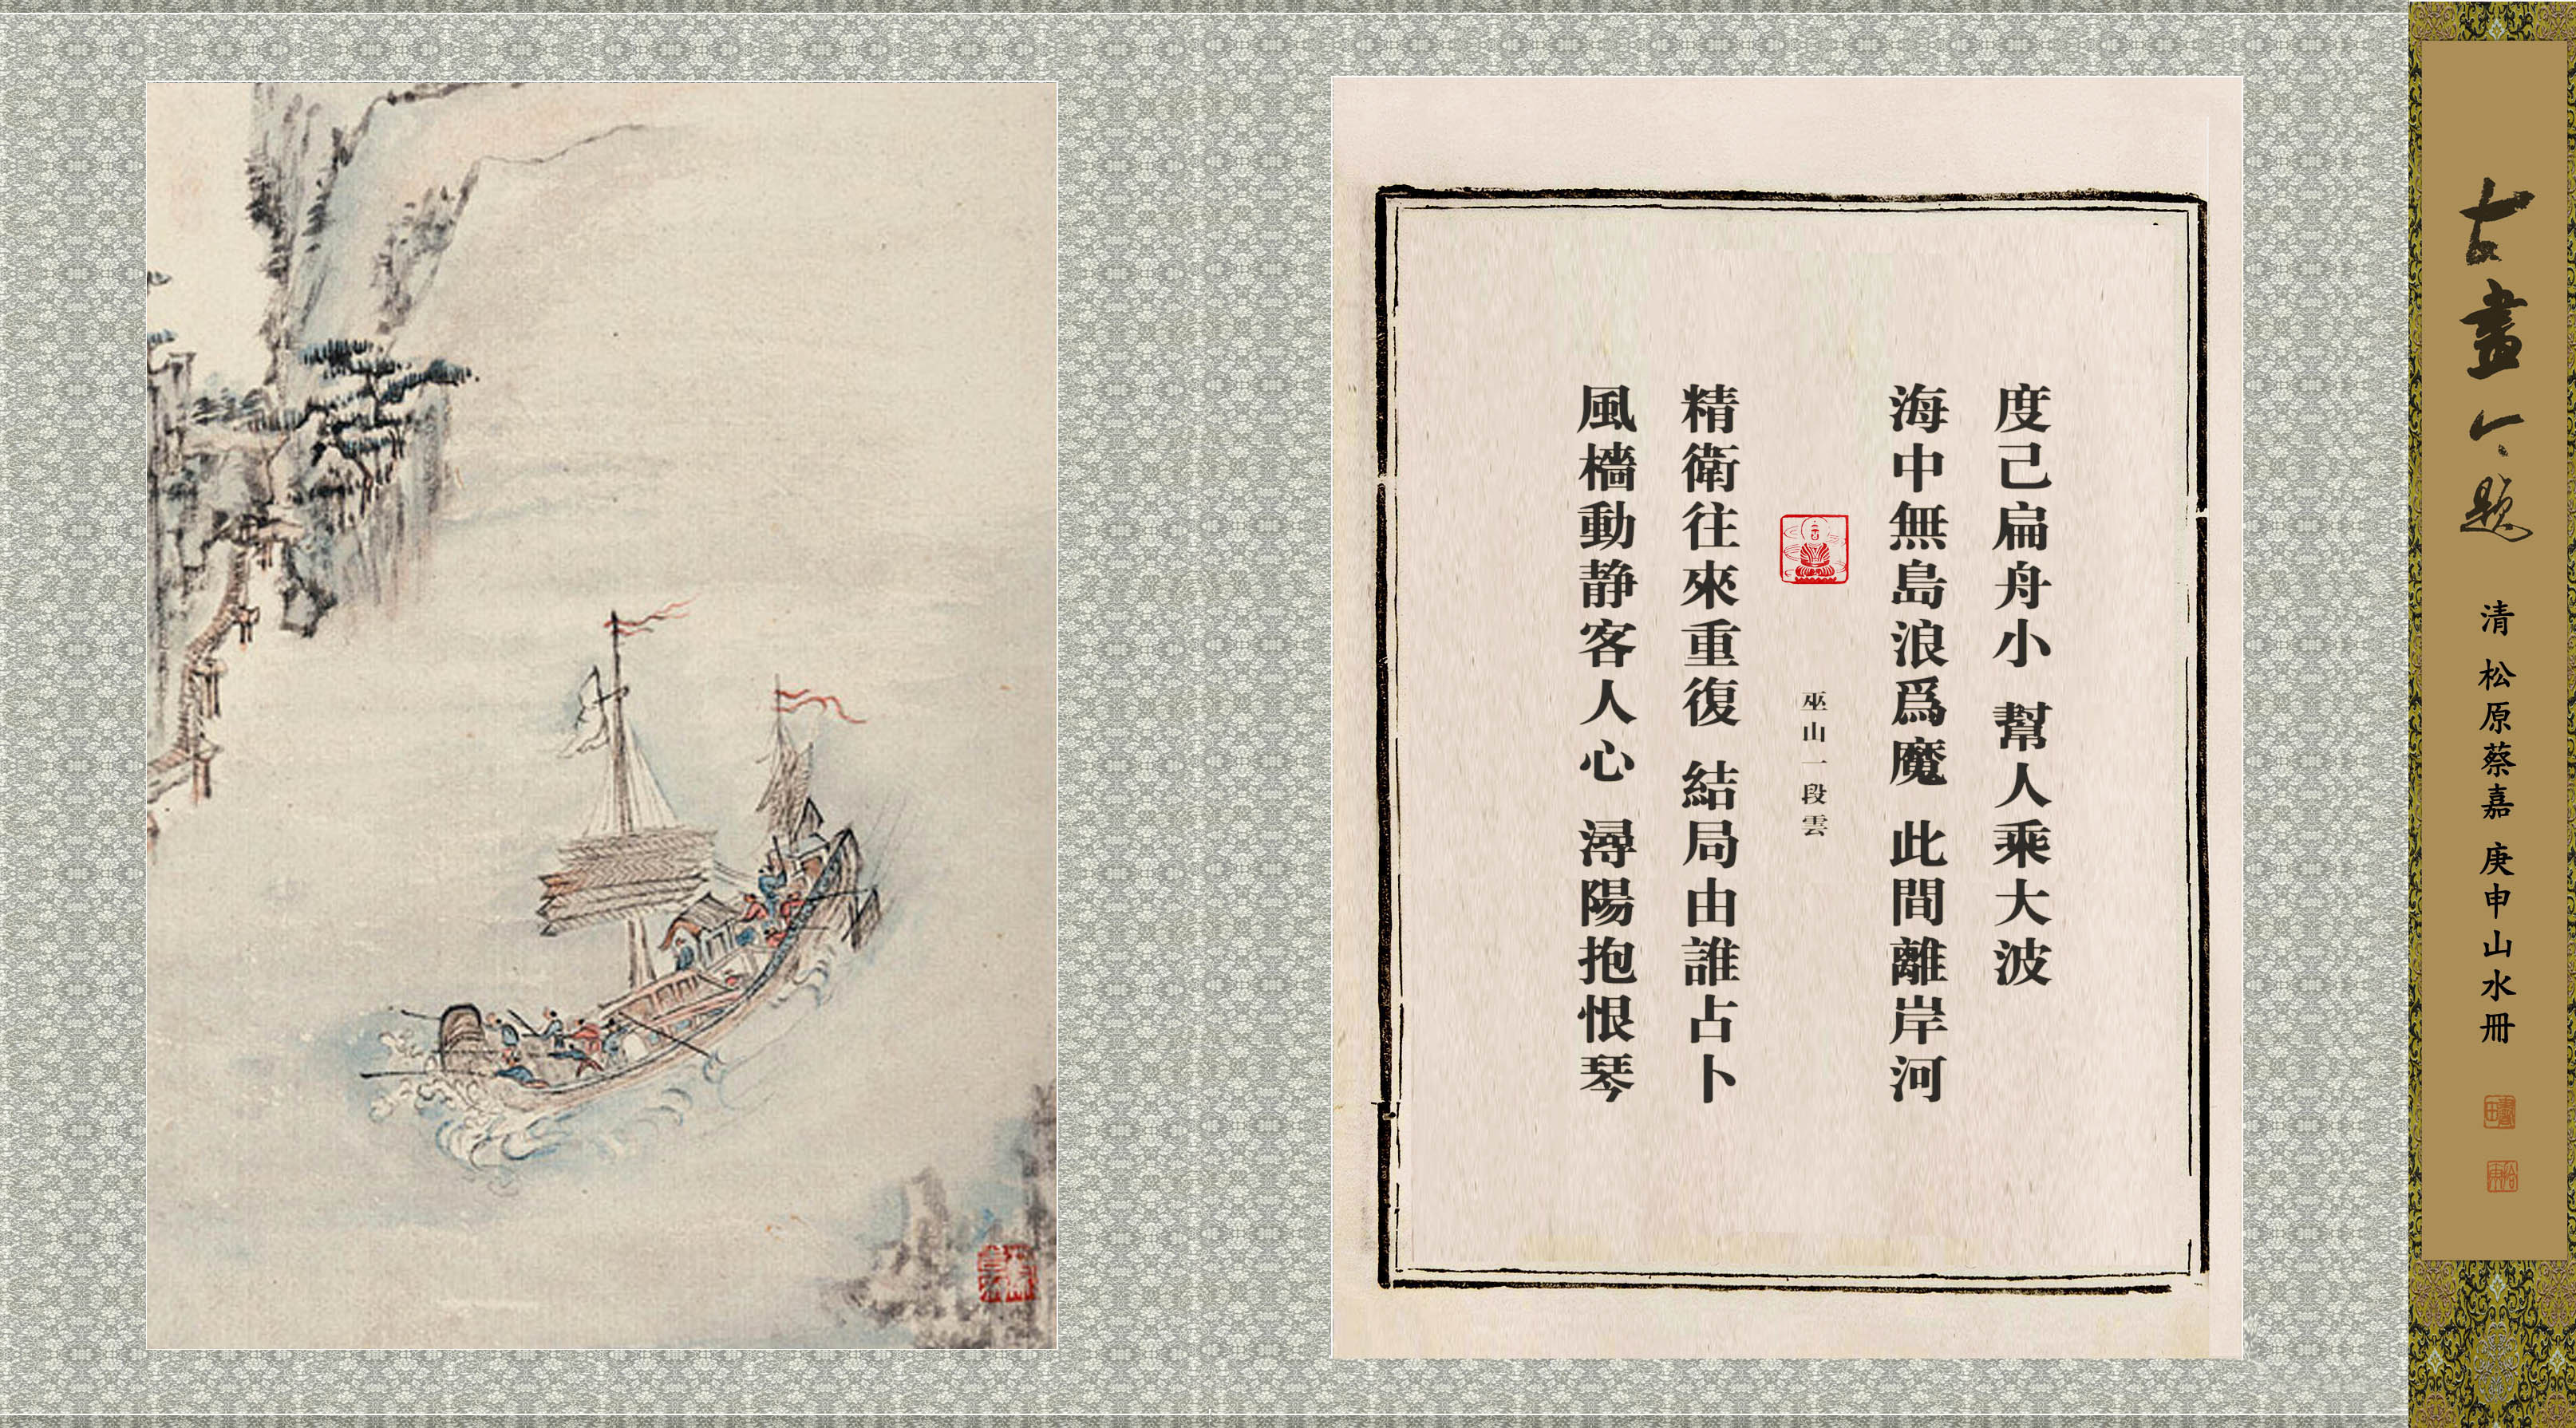 古畫今題
清 松原蔡嘉 庚申山水冊
度己扁舟小 幫人乘大波
海中無島浪爲魔 此間離岸河
巫山一段雲
精衛往來重復 結局由誰占卜
風檣動静客人心 潯陽抱恨琴